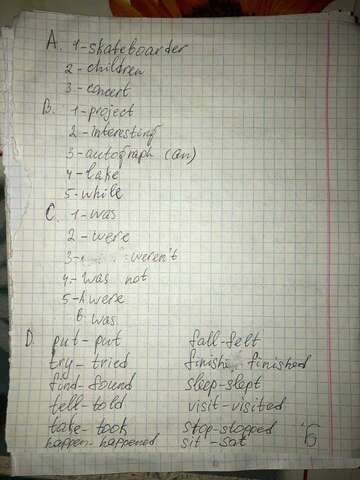 A. 1-skateboarder
2-children
3-concert
B. 1-project
2-interesting
3-autograph (an)
4-lake
5-while
C. 1-was
2-were
3- weren't
4-was not
5-were
6 was
D. put-put fall-felt
try-tried finish- finished
find-found sleep-slept
tell-told visit-visited
take-took stop-stopped
happen-happened sit-sat